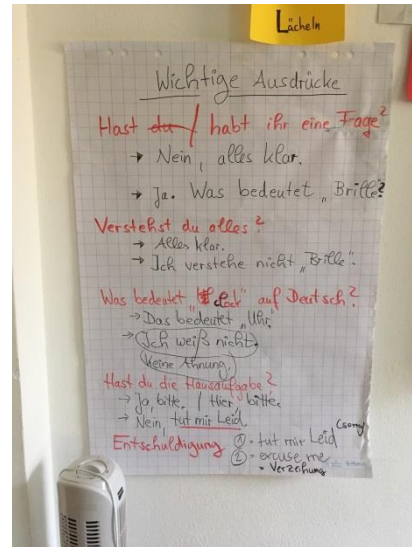 Lächeln
Wichtige Ausdrücke
Hast du / habt ihr eine Frage?
→ Nein, alles klar.
→ Ja. Was bedeutet „Brille"?
Verstehst du alles?
→ Alles klar.
→ Ich verstehe nicht „Brille".
Was bedeutet „clock" auf Deutsch?
→ Das bedeutet „Uhr".
→ Ich weiß nicht.
Keine Ahnung.
Hast du die Hausaufgabe?
→ Ja, bitte. / Hier, bitte.
→ Nein, tut mir Leid.
Entschuldigung ① = tut mir Leid (sorry)
② = excuse me
= Verzeihung